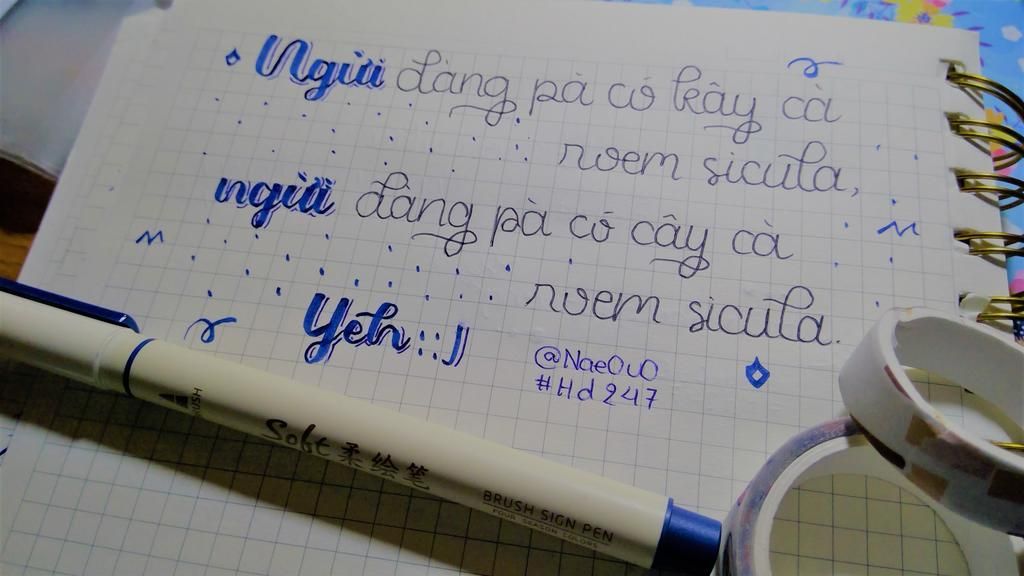 Ngừi đàng pà có kây cà
roem sicula,
ngừi đàng pà có cây cà
roem sicula.
Yêh :: ))
@NaeOuO
#Hd247
Soft 柔绘笔
BRUSH SIGN PEN
FOUR SEASON COLORS